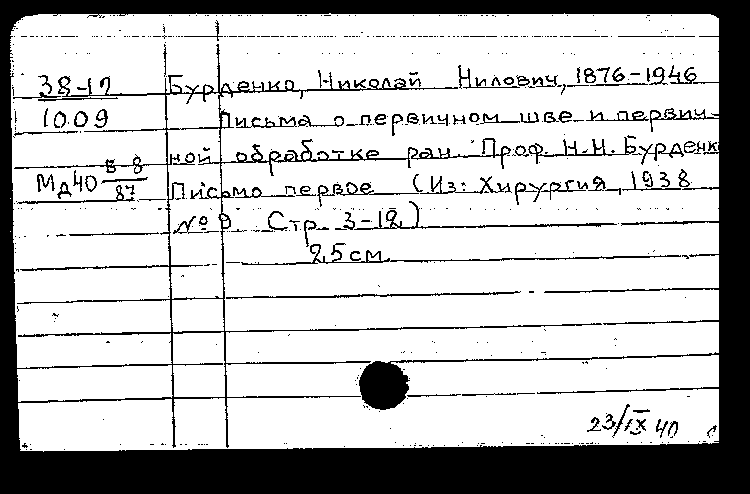 38-17 Бурденко, Николай Нилович, 1876-1946
1009 Письма о первичном шве и первич-
ной обработке ран. Проф. Н.Н. Бурденк
Мд40 В-8/87 Письмо первое (Из: Хирургия, 1938
№ 9 Стр. 3-12)
25 см.
23/IX 40